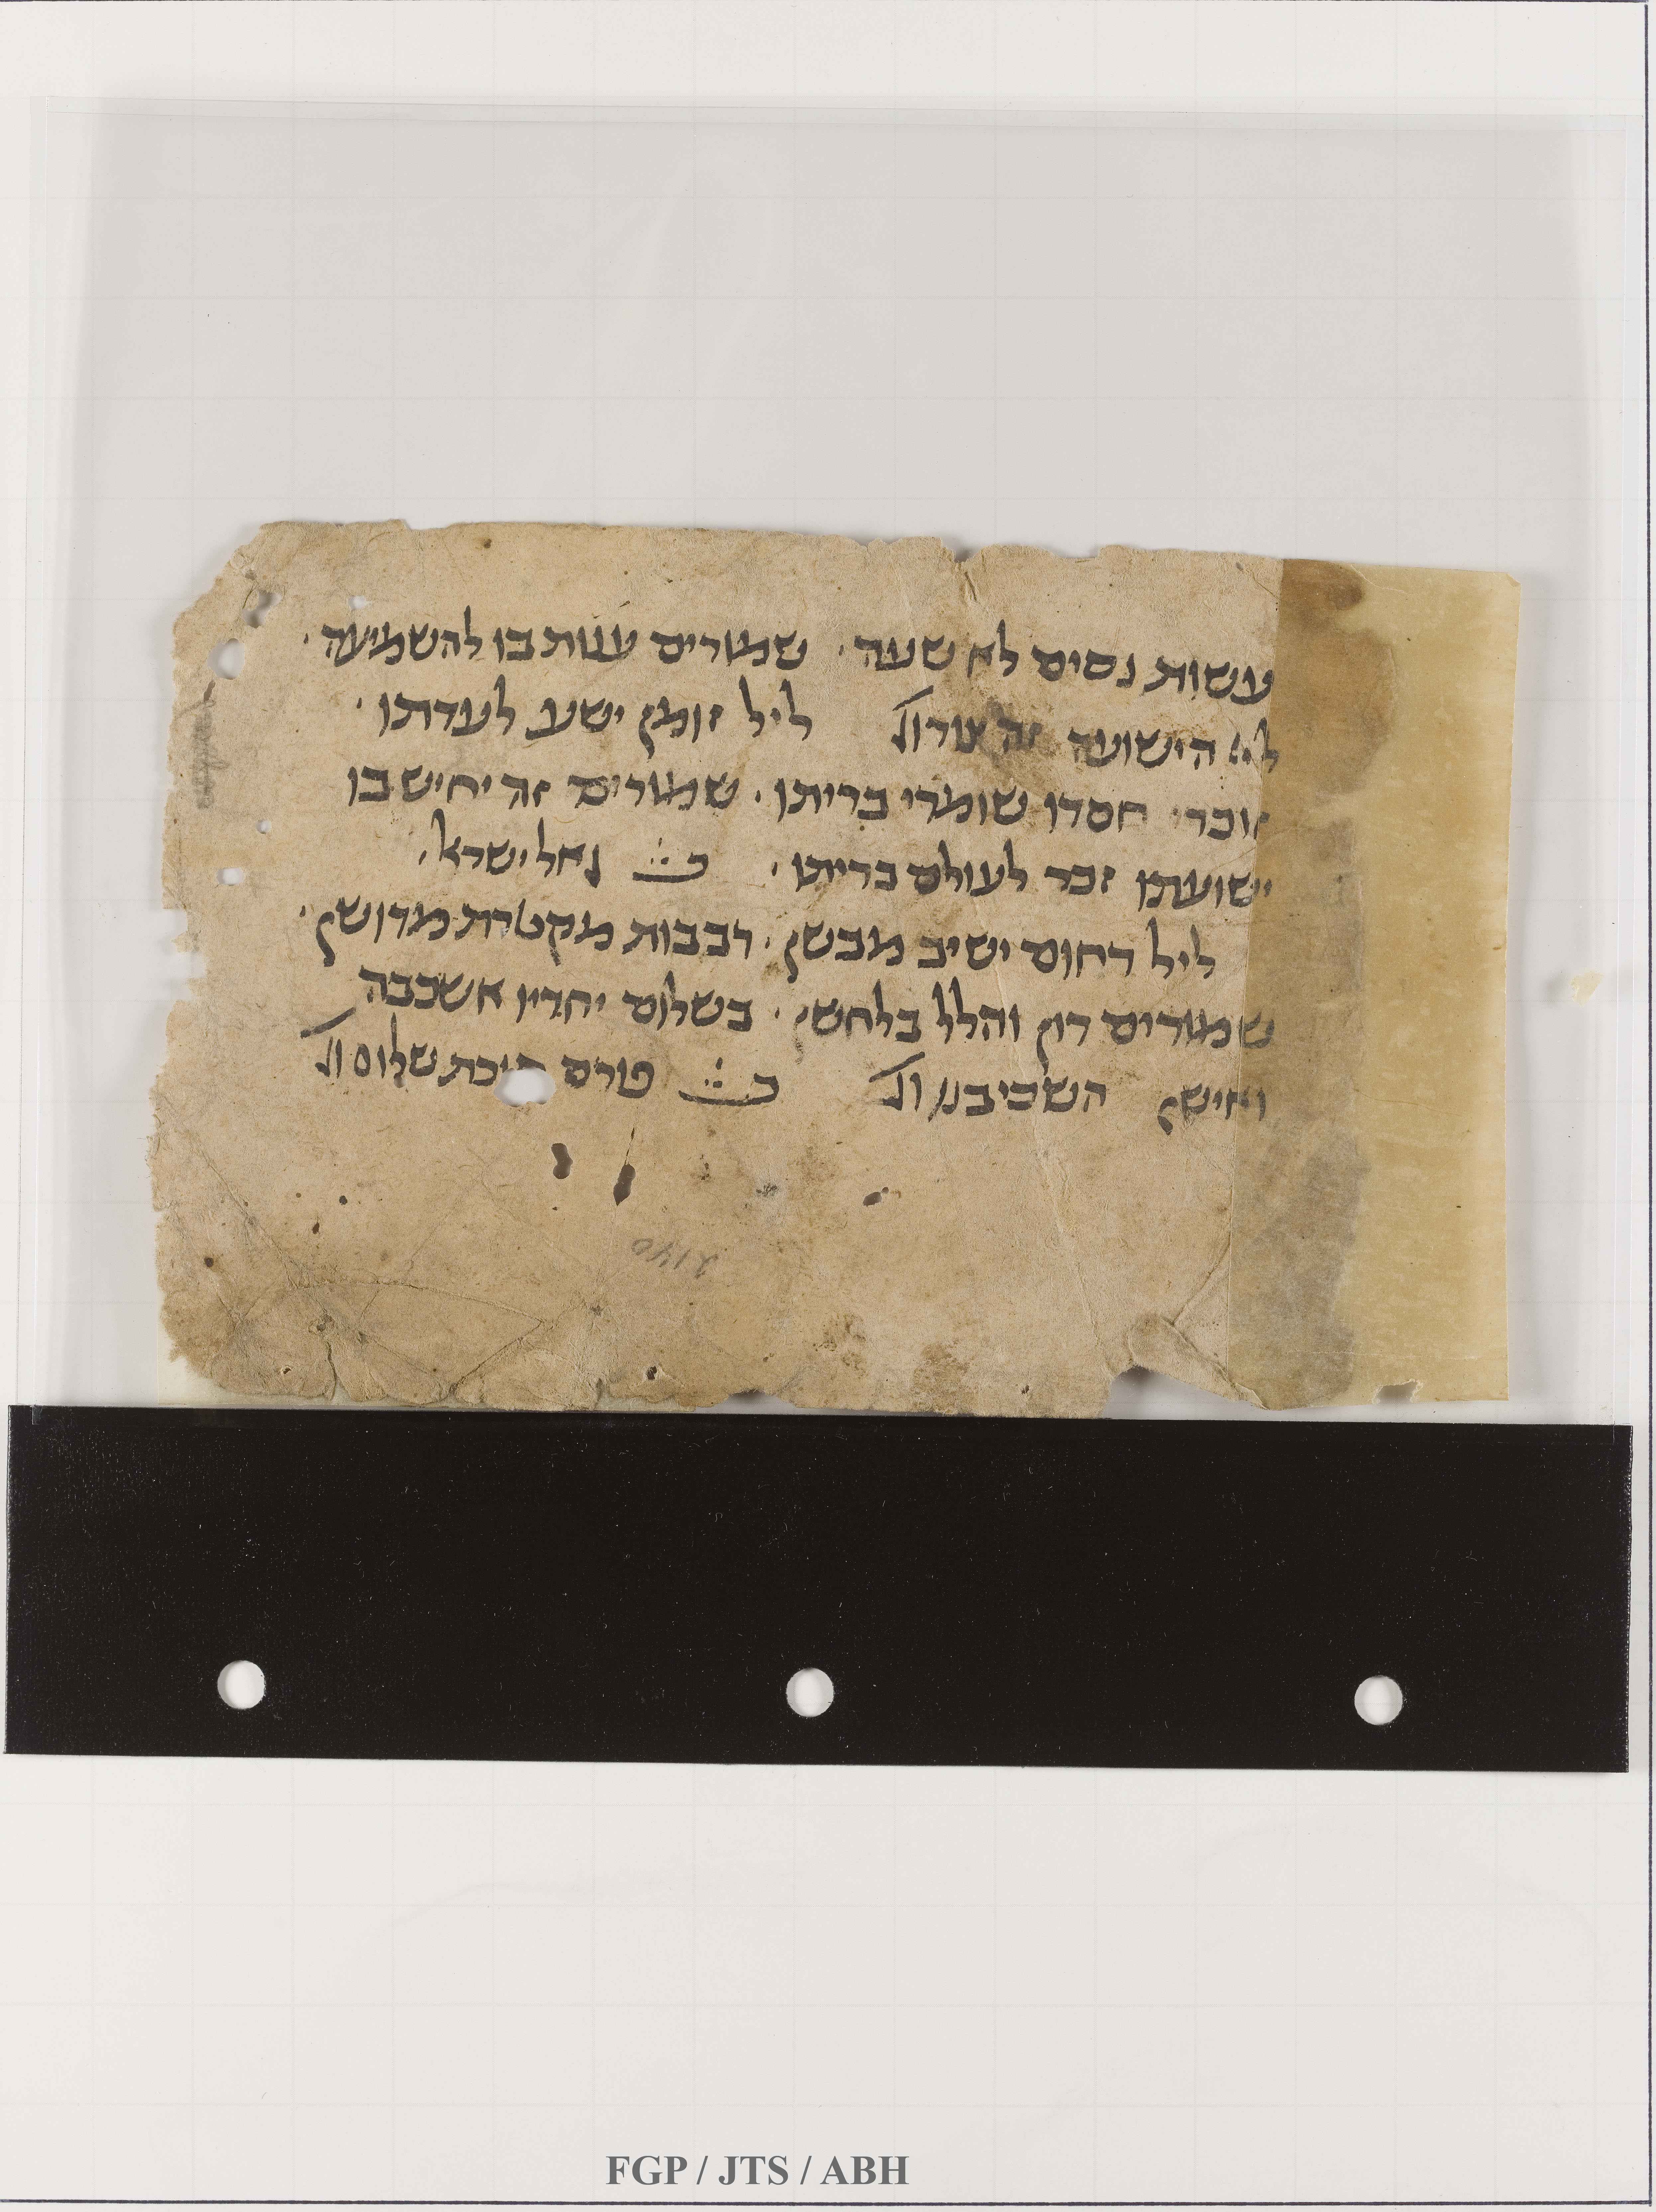 עשות נסים לא שעה · שמורים ענות בו להשמיעה ·
ליא הישועה זה צור ול ליל זומן ישע לעדתו ·
זוכר חסדו שומרי בריתו · שמורים זה יחיש בו
ישועתו זכר לעולם בריתו · ב גאל ישרא
ליל רחום ישיב מבשן · רבבות מקטרת מדושן ·
שמורים רון והלל בלחשן · בשלום יחדיו אשכבה
ואישן השכיבנו ול ב פורס סוכת שלום ול
2140
FGP / JTS / ABH